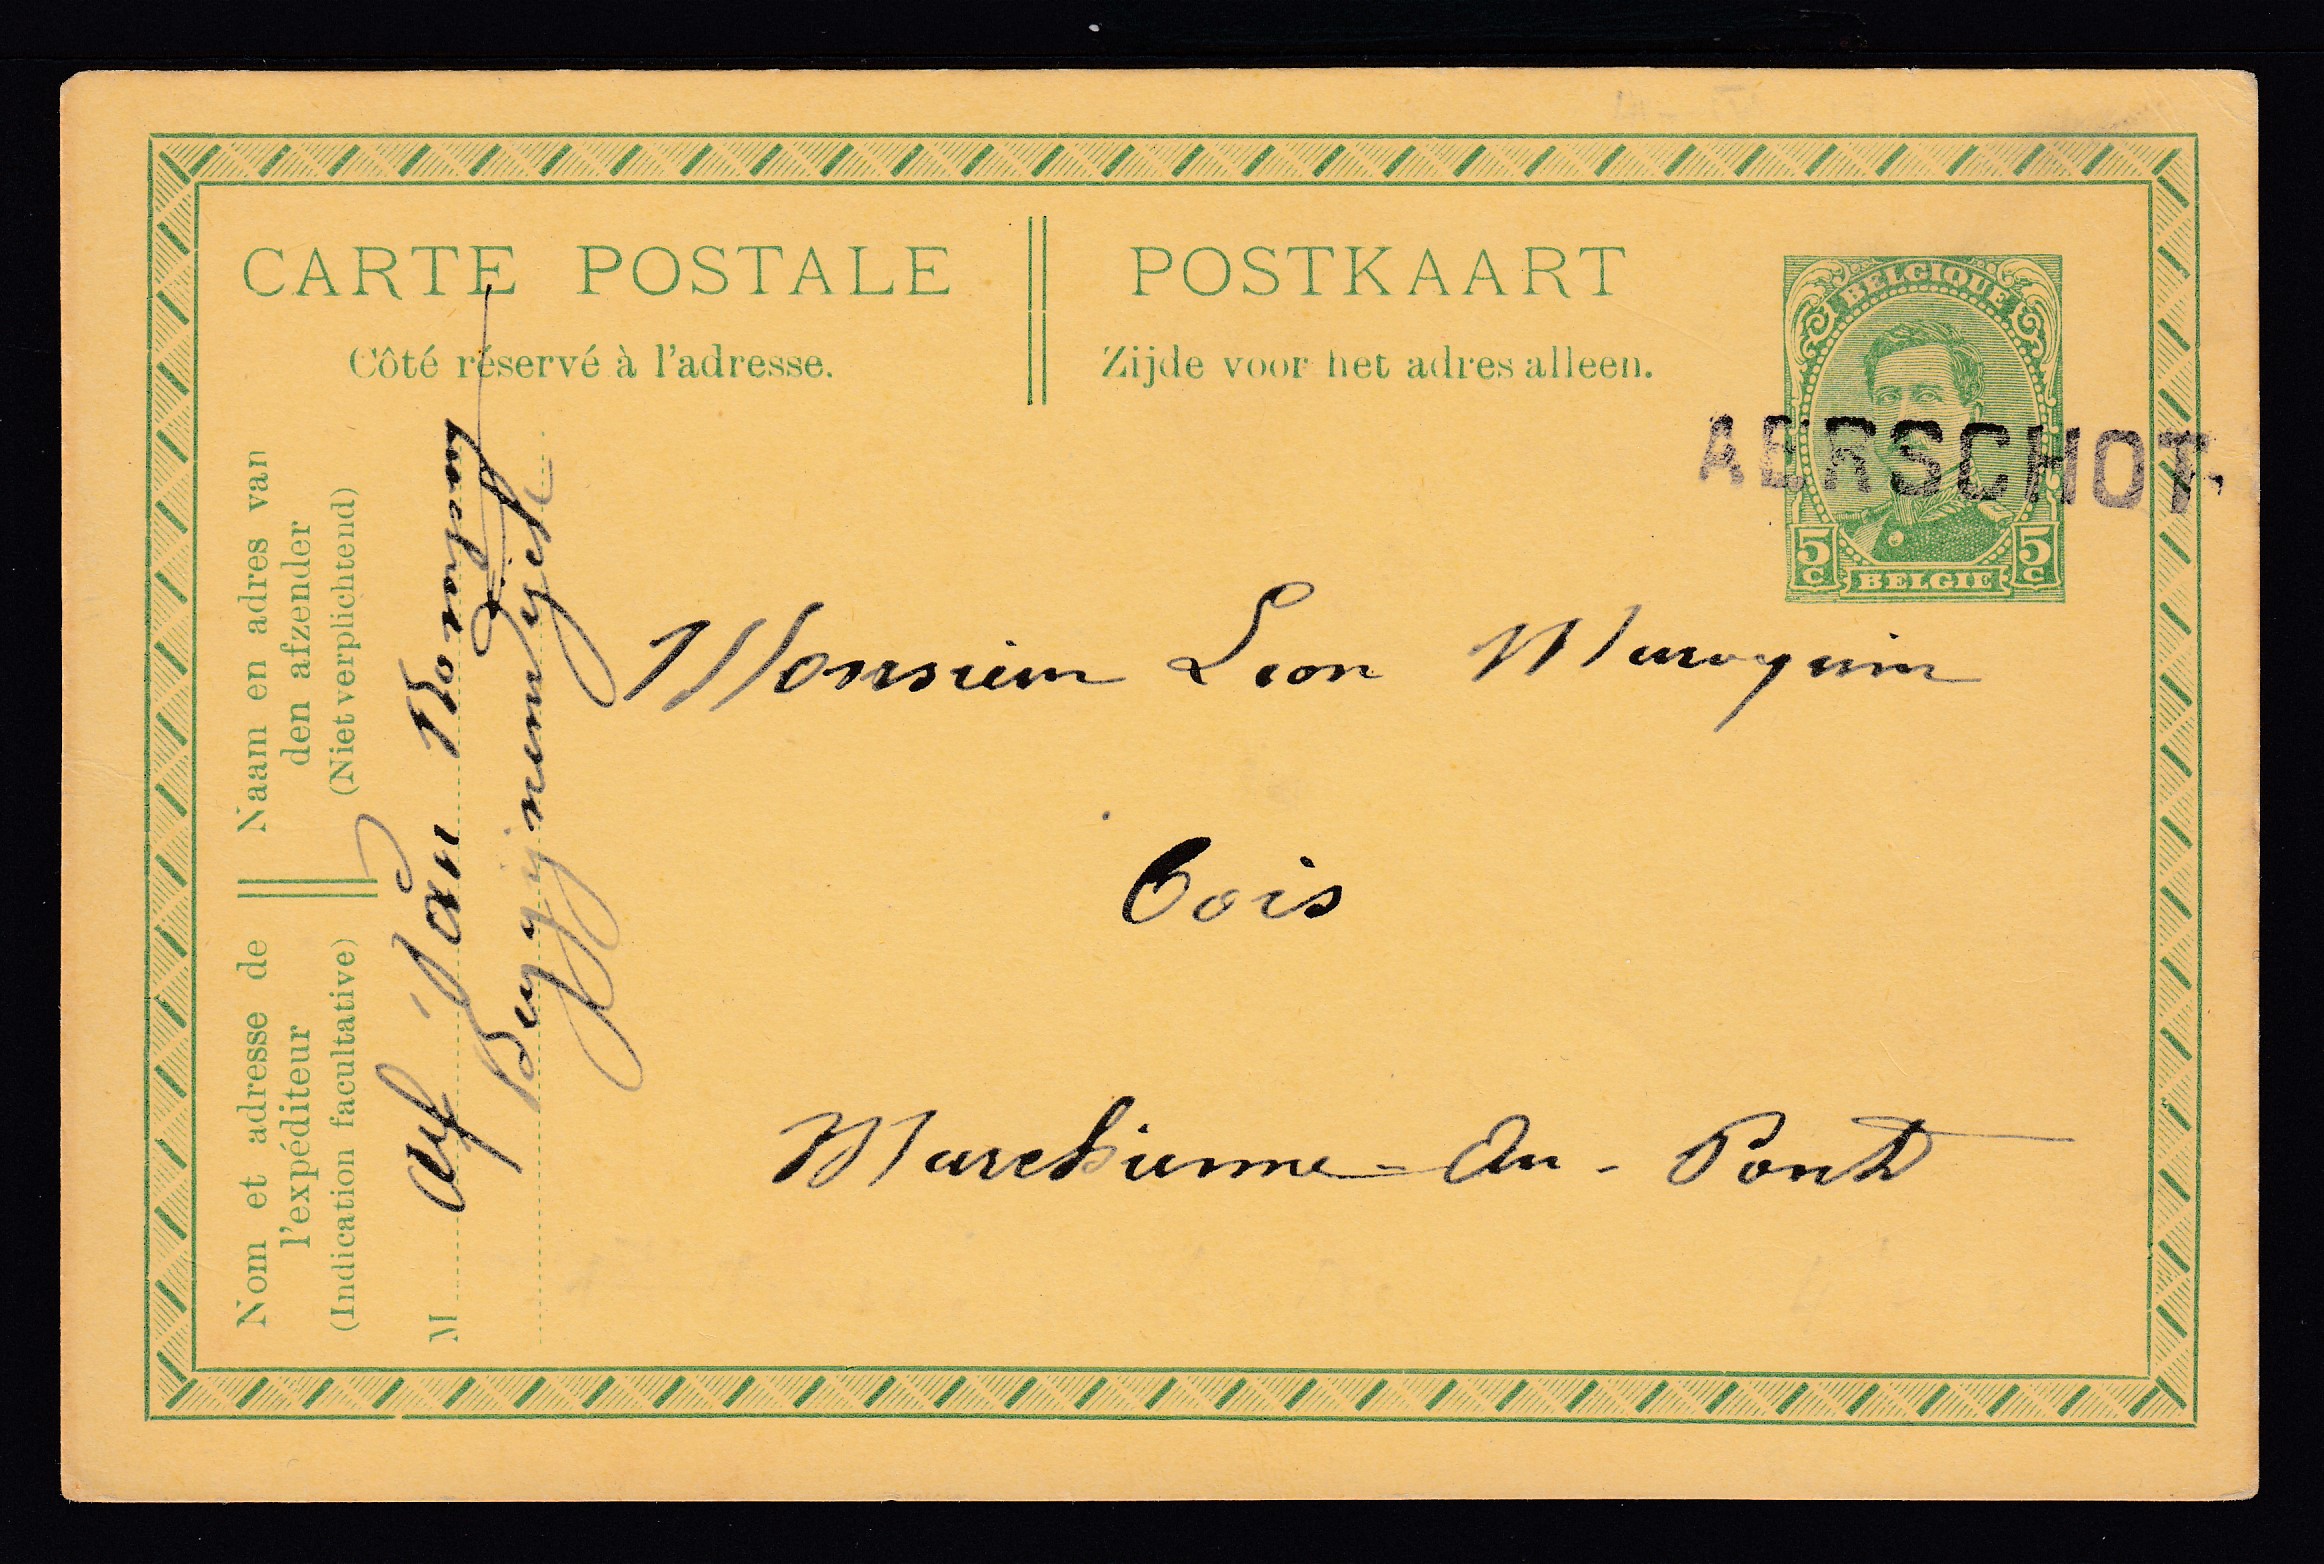 CARTE POSTALE
Côté réservé à l'adresse.
POSTKAART
Zijde voor het adres alleen.
BELGIQUE
5 c
BELGIË
5 c
AERSCHOT.
Nom et adresse de
l'expéditeur
(Indication facultative)
Naam en adres van
den afzender
(Niet verplichtend)
M
Monsieur Leon Maroquin
bois
Marchienne - Au - Pont